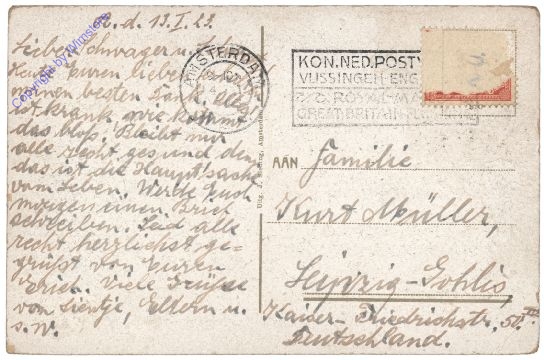 A. d. 13.I.23.
Lieber Schwager u.
Heute Euren lieben
meinen besten Dank. Ella
ist krank, wie kommt
das bloß. Bleibt mir
alle recht gesund denn
das ist die Hauptsache
vom Leben. Werde Euch
morgen einen Brief
schreiben. Seid alle
recht herzlichst ge-
grüßt von Euren
Erich. Viele Grüße
von Sientje, Eltern u.
s. w.
Copyright by Winsters
AMSTERDAM
KON. NED. POST
VLISSINGEN-ENG
ROYAL-MA
GREAT-BRITAIN
Uitg. J. Amsterdam
AAN
Familie
Kurt Müller,
Leipzig-Gohlis
Kaiser-Friedrichstr. 50 III
Deutschland.